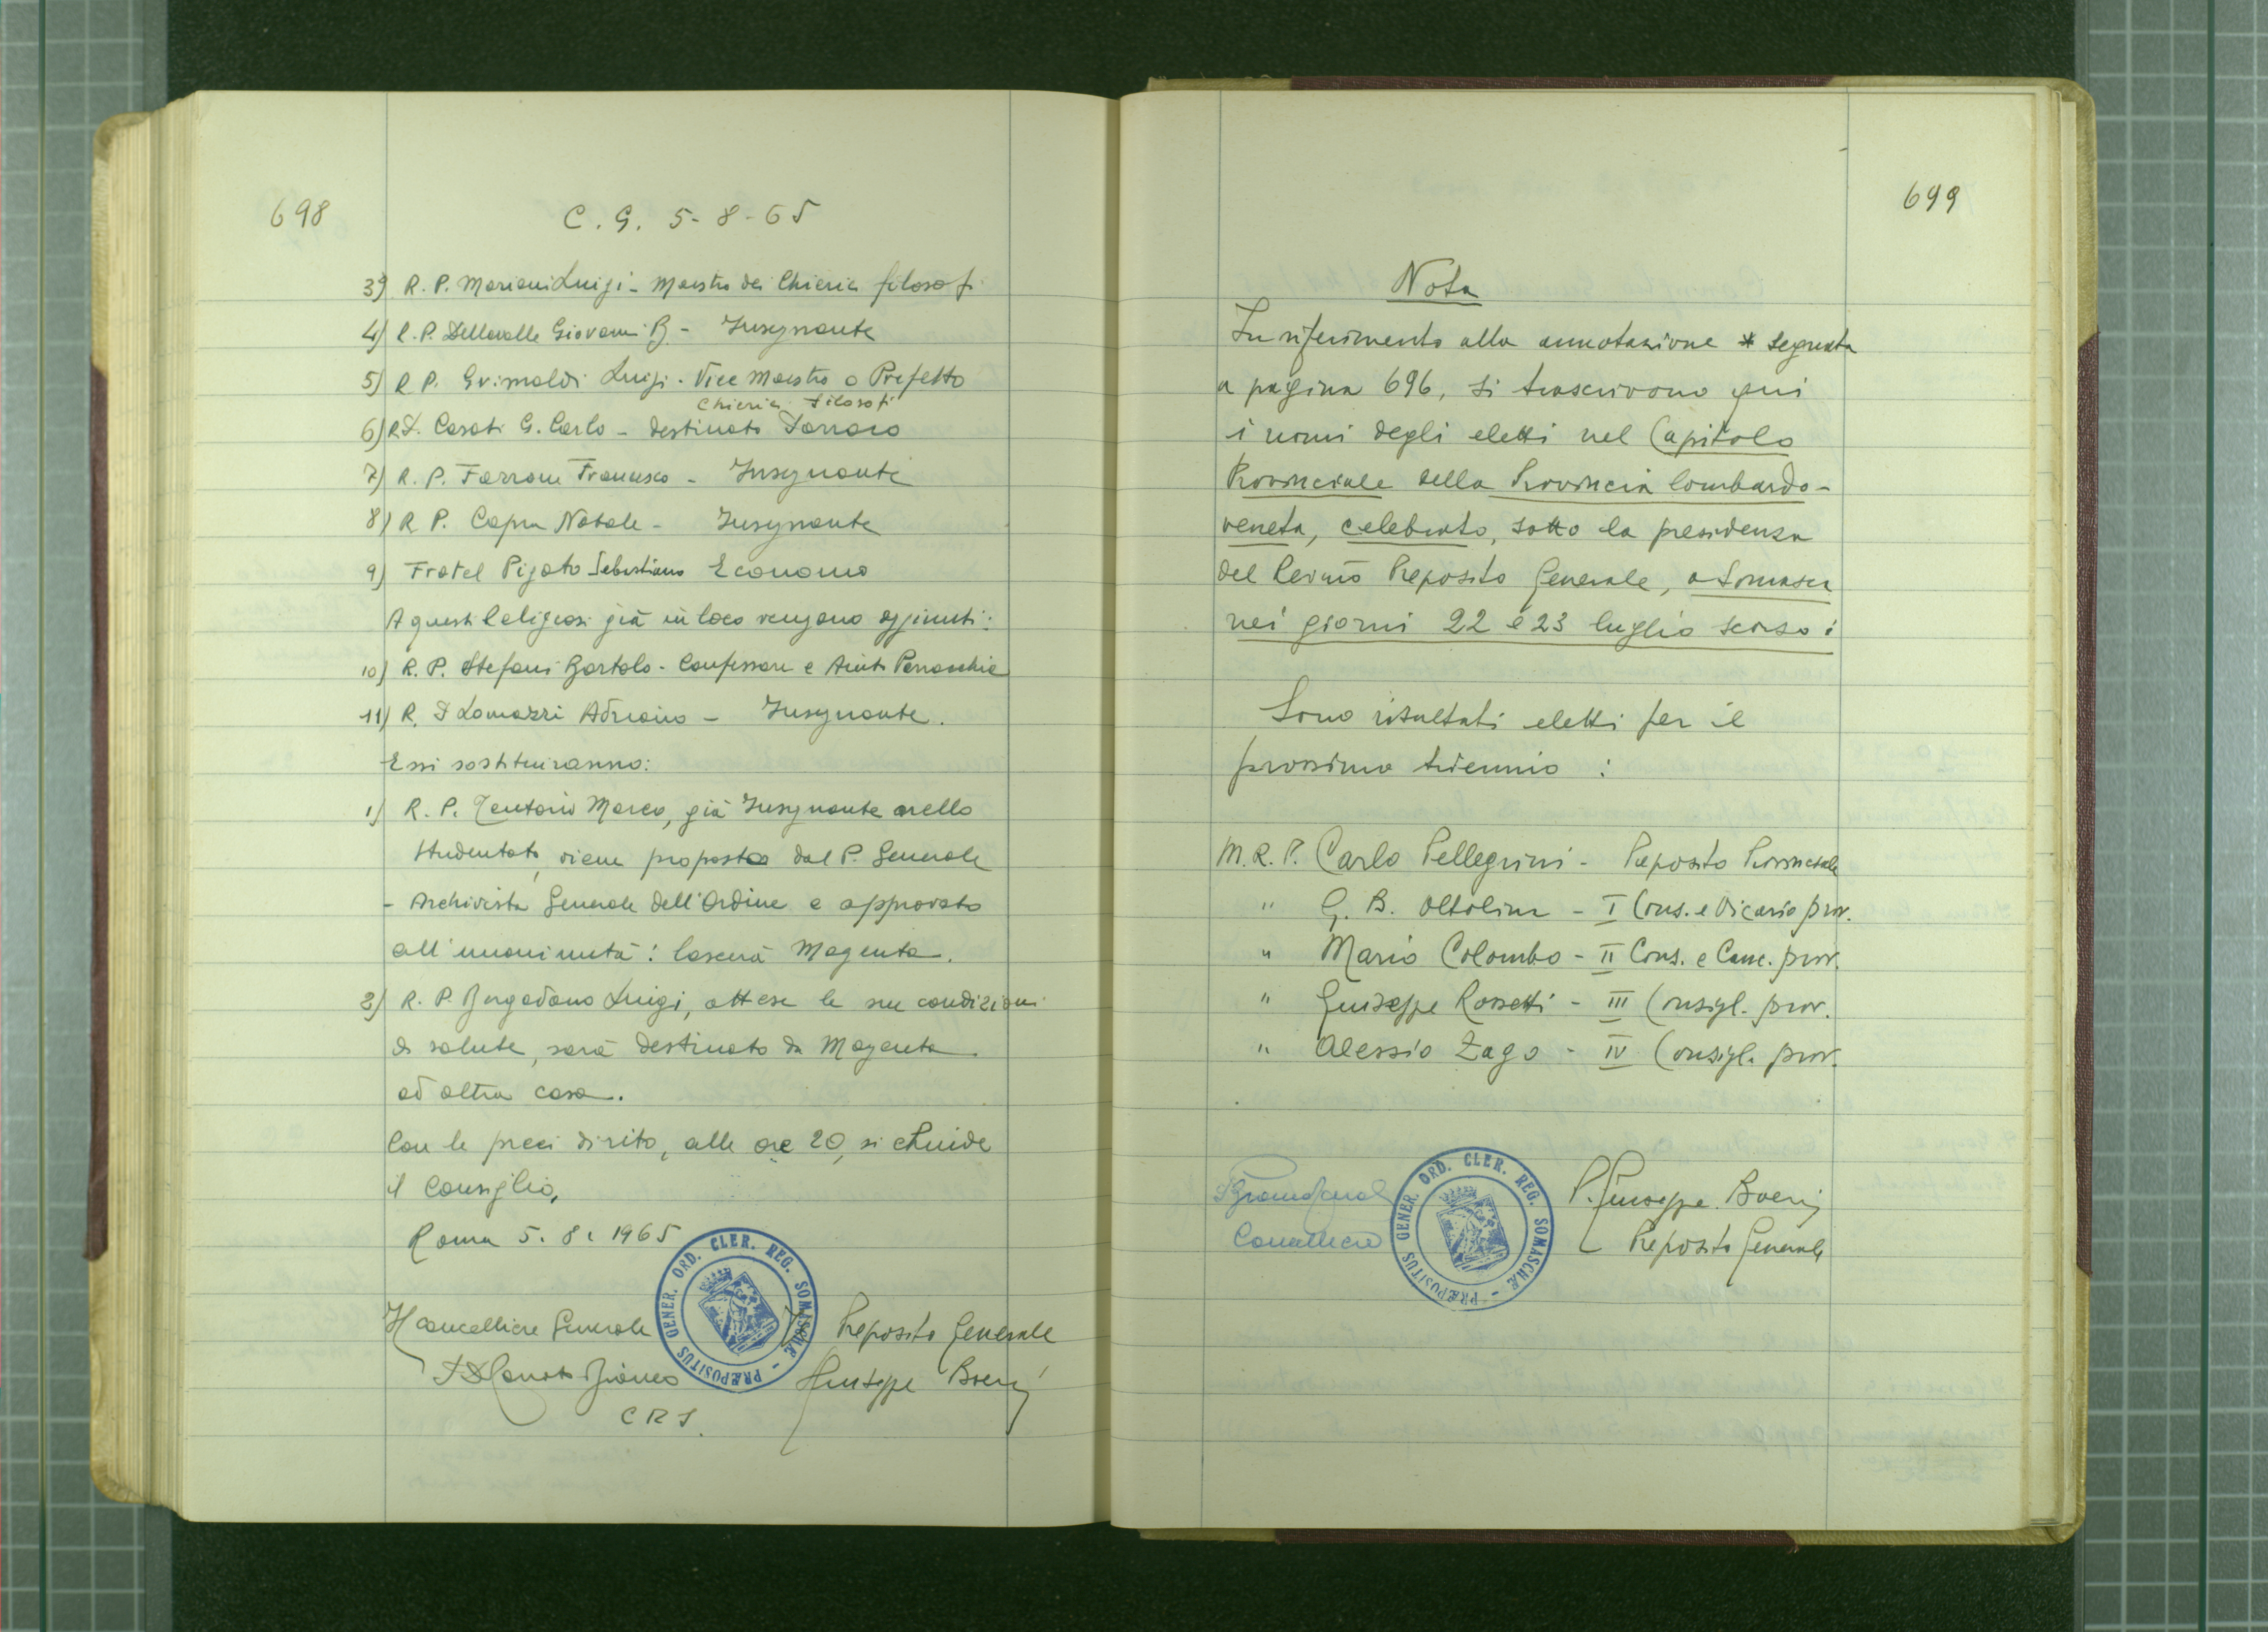 698
C. G. 5-8-65
3) R. P. Mariani Luigi - Maestro dei Chierici filosofi
4) R. P. Dellavalle Giovanni B. - Insegnante
5) R P. Grimaldi Luigi - Vice Maestro o Prefetto
Chierici filosofi
6) R.D. Casati G. Carlo - destinato
7) R. P. Farrone Francesco - Insegnante
8) R P. Capra Natale - Insegnante
9) Fratel Pigato Sebastiano Economo
A questi Religiosi già in loco vengono aggiunti:
10) R. P. Stefani Bortolo - Confessore e Aiuto Parrocchia
11) R. D Lomazzi Adriano - Insegnante.
Essi sostituiranno:
1) R. P. Tentorio Marco, già Insegnante nello
Studentato, viene proposto dal P. Generale
- Archivista Generale dell'Ordine e approvato
all'unanimità: lascerà Magenta.
2) R. P. Bergadano Luigi, attese le sue condizioni
di salute, sarà destinato da Magenta
ad altra casa.
Con le preci di rito, alle ore 20, si chiude
il Consiglio.
Roma 5. 8. 1965
Il cancelliere Generale
Il Preposito Generale
Bianco
Giuseppe Boeri
C R S.
PRÆPOSITUS GENER. ORD. CLER. REG. SOMASCHÆ
699
Nota
In riferimento alla annotazione * segnata
a pagina 696, si trascrivono qui
i nomi degli eletti nel Capitolo
Provinciale della Provincia lombardo-
veneta, celebrato, sotto la presidenza
del Rev.mo Preposito Generale, a Somasca
nei giorni 22 e 23 luglio scorso:
Sono risultati eletti per il
prossimo triennio :
M. R. P. Carlo Pellegrini - Preposito Provinciale
" G. B. Oltolina - I Cons. e Vicario prov.
" Mario Colombo - II Cons. e Canc. prov.
" Giuseppe Rossetti - III Consigl. prov.
" Alessio Zago - IV Consigl. prov.
P. Giuseppe Boeri
Cancelliere
Preposito Generale
PRÆPOSITUS GENER. ORD. CLER. REG. SOMASCHÆ